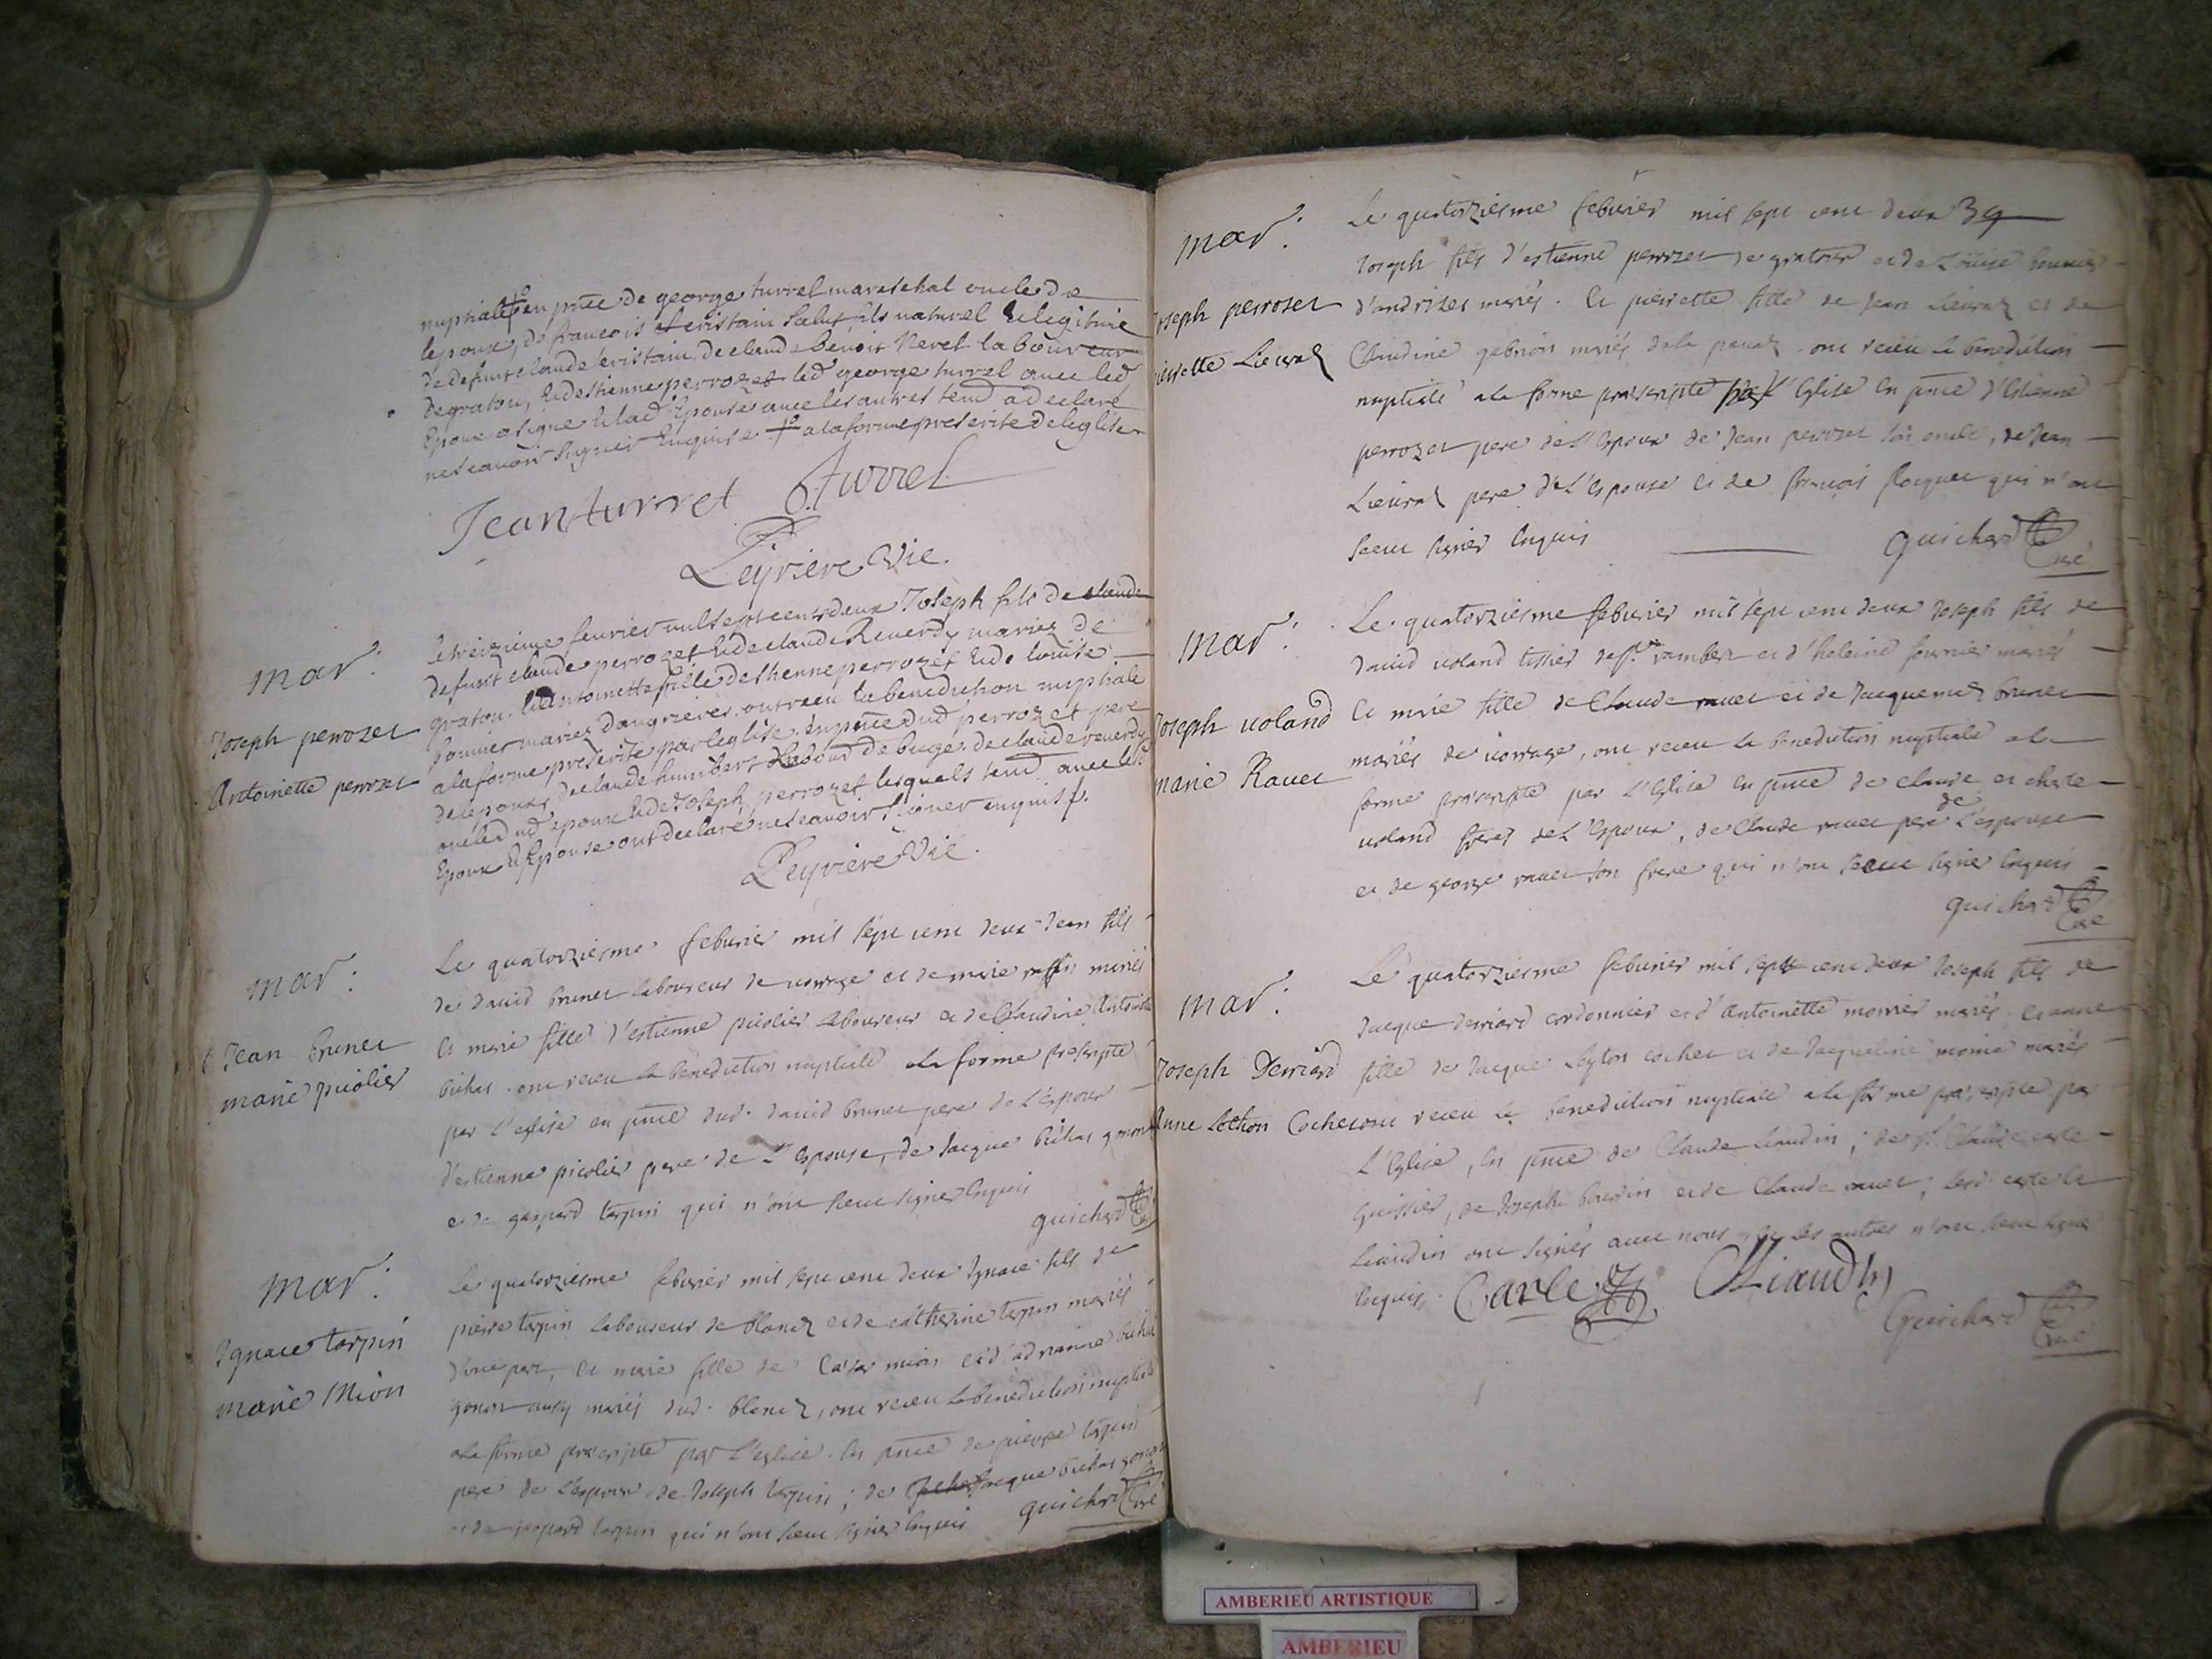 nuptiale en pnce de george turrel mareschal oncle de
lepoux, de francois cristain Salut, fils naturel & legitime
de defunt claude cristain. de claude benoit Neret laboureur
de graton, & destienne perrozet led george turrel avec led
Epoux a signe & lad Epouse avec les autres tem ad eclaré
ne scavoir signer Enquise a la forme prescrite de leglise
Jean turret G. turrel
Peyriere Vic.
mar:
Joseph perrozet
Antoinette perrozet
le treizieme fevrier mil sept cents deux Joseph fils de claude
defunt claude perrozet & de claude Reverdy mariez de
graton. & Antoinette fille destienne perrozet & de louise
mariez dangrieres. ont receu la benediction nuptiale
a la forme prescrite par leglise. en pnce dud perrozet pere
de lepouse, de claude humbert de buge. de claude reverdy
oncle dud epoux & de Joseph perrozet lesquels tem avec lesd
Epoux & Epouse ont declaré ne scavoir signer enquis f.
Peyriere Vic.
mar:
Jean brunet
marie picolier
Le quatorziesme febvrier mil sept cent deux Jean fils
de david brunet laboureur de vorage et de marie mariés
et marie fille d'estienne picolier laboureur et de Claudine Antoinette
bichat. ont receu la benediction nuptiale a la forme prescripte
par L'eglise en pnce dud. david brunet pere de L'espoux
d'estienne picolier pere de L'espouse, de Jacque bichat gonon
et de gaspard tarpin qui n'ont sceu signer Enquis
guichard Curé
mar:
Ignace tarpin
marie Mion
Le quatorziesme febvrier mil sept cent deux Ignace fils de
pierre tarpin laboureur de blanez et de catherine tarpin mariés
d'une part, et marie fille de Cesar mion et d'adrianne bichat
gonon aussy mariés dud. blanez, ont receu la benediction nuptiale
a la forme prescripte par L'eglise. En pnce de pierre tarpin
pere de L'espoux de Joseph tarpin; de Jacque bichat gonon
et de gaspard tarpin qui n'ont sceu signer Enquis guichard Curé
mar:
Joseph perroset
pierrette Lieuraz
Le quatorziesme febvrier mil sept cent deux 39
Joseph fils d'estienne perrozet de gratour et de Louise
d'andrizes mariés. Et pierrette fille de Jean Lieuraz et de
Claudine gabrion mariés de la ont receu la benediction
nuptiale a la forme prescripte par L'Eglise En pnce d'Estienne
perrozet pere de L'Espoux de Jean perrozet son oncle, de Jean
Lieuraz pere de L'Espouse et de francois Roquet qui n'ont
sceu signer Enquis guichard Curé
mar:
Joseph voland
marie Ravet
Le quatorziesme febvrier mil sept cent deux Joseph fils de
david voland tissier de st. rambert et d'heleine fournier mariés
Et marie fille de Claude ravet et de Jacquemaz brunet
mariés de vorrage, ont receu la benediction nuptiale a la
forme prescripte par L'Eglise En pnce de claude et charle
voland freres de L'Espoux, de Claude ravet pere de L'espouse
et de george ravet son frere qui n'ont sceu signé Enquis
guichard Curé
mar:
Joseph Derriard
Anne Lethon
Le quatorziesme febvrier mil sept cent deux Joseph fils de
Jacque derriard cordonnier et d'Antoinette monier mariés. Et anne
fille de Jacque Leyton cocher et de Jacqueline moine mariés
Cochecout receu la benediction nuptiale a la forme prescripte par
L'Eglise, En pnce de Claude Liaudin; de sr. Claude carle
huissier, de Joseph bourdin et de Claude ravet; Lesd carle et
Liaudin ont signés avec nous et les autres n'ont sceu signe
Enquis. Carle CLiaudin
Guichard Curé
AMBERIEU ARTISTIQUE
AMBERIEU